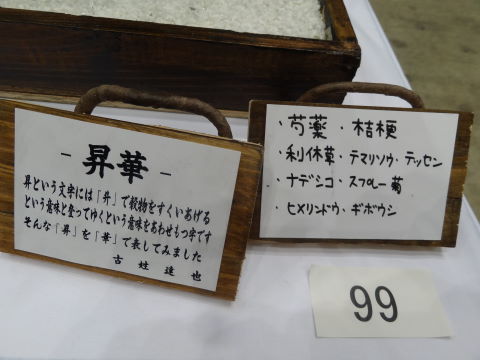 - 昇華 -
昇という文字には「升」で穀物をすくいあげる
という意味と登ってゆくという意味をあわせもつ字です
そんな「昇」を「華」で表してみました
古姓達也
・芍薬・桔梗
・利休草・テマリソウ・テッセン
・ナデシコ・スプレー菊
・ヒメリンドウ・ギボウシ
99